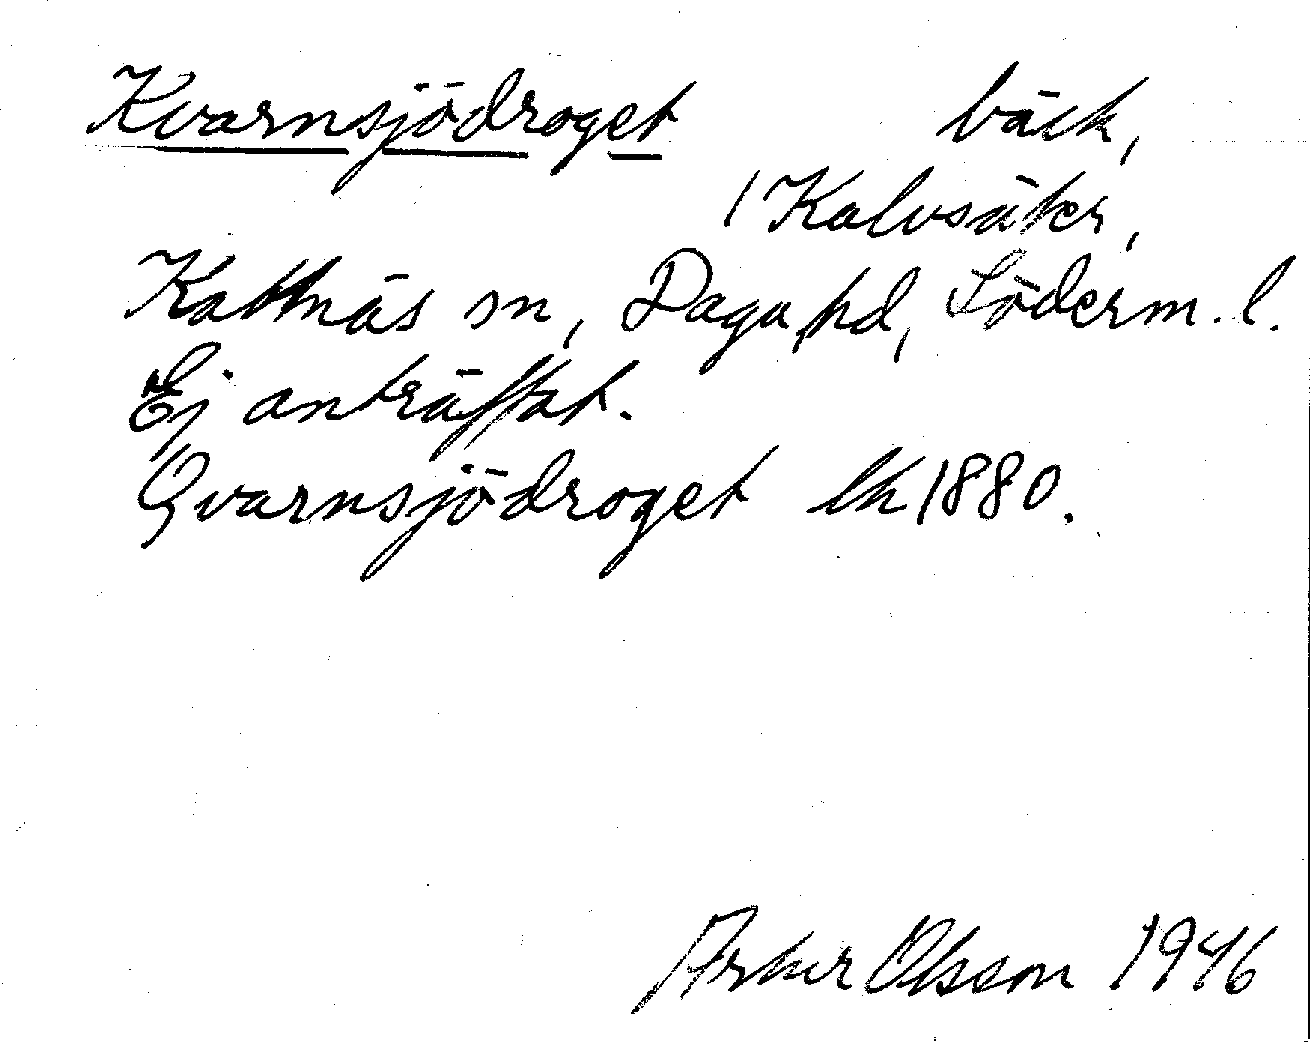 Kvarnsjödroget bäck,
/ Kalvsäker,
Kattnäs sn, Daga hd, Söderm. l.
Ej anträffat.
Qvarnsjödroget lk 1880.
Artur Olsson 1946